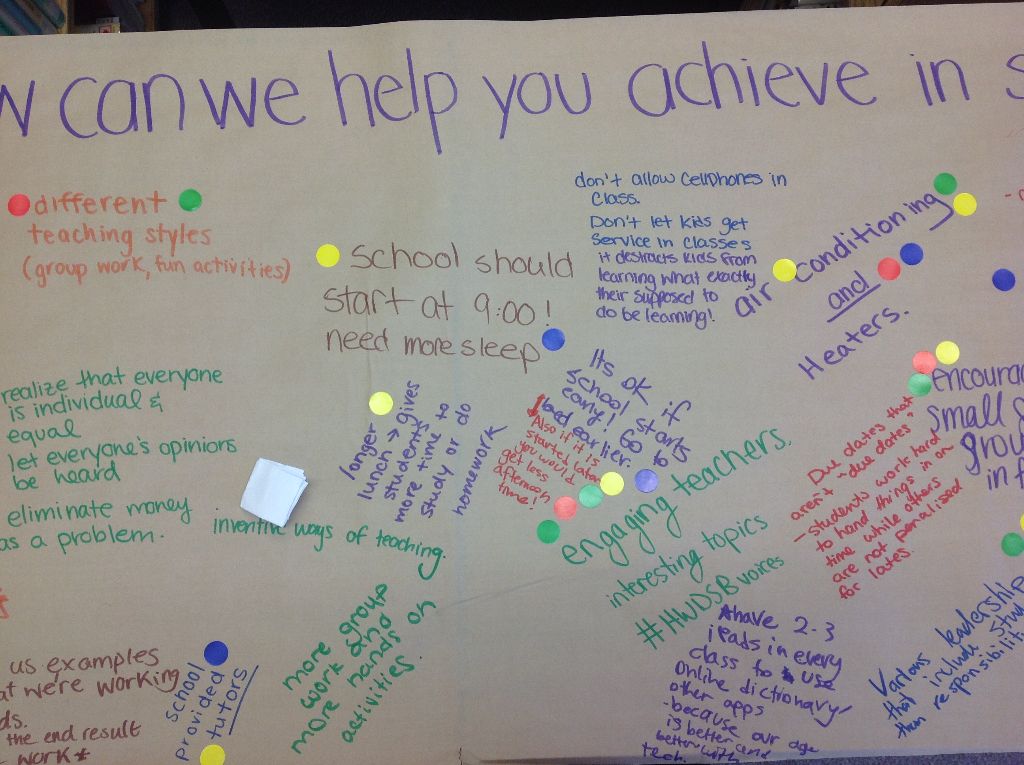 can we help you achieve in
different
teaching styles
(group work, fun activities)
school should
start at 9:00!
need more sleep
don't allow cellphones in
class.
Don't let kids get
service in classes
it destracts kids from
learning what exactly
their supposed to
do be learning!
air conditioning
and
Heaters.
realize that everyone
is individual &
equal
let everyone's opinions
be heard
eliminate money
as a problem.
inventive ways of teaching.
longer
lunch → gives
students
more time to
study or do
homework
Its ok if
school starts
early! Go to
bed earlier.
Also if it is
started later
you would
get less
afternoon
time!
engaging teachers.
interesting topics
#HWDSB voices
Due dates that
aren't "due dates"
- students work hard
to hand things in on
time while others
are not penalised
for lates.
small
us examples
we're working
the end result
work*
school
provided
tutors
more group
work and
more hands on
activities.
have 2-3
ipads in every
class to use
online dictionary/
other apps
- because our age
is better and
better with
tech.
Various leadership
that include
than